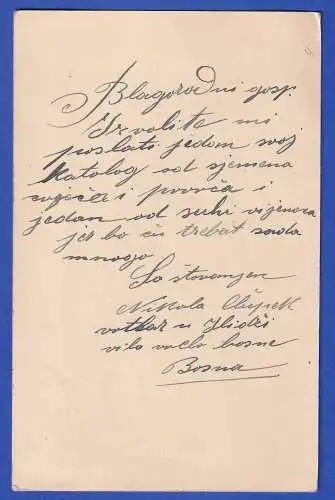 Blagorodni gosp.
Izvolite mi
poslati jedan svoj
Katalog od sjemena
cvjeća i povrća i
jedan od suhi vijenaca
jer bo ću trebat sada
mnogo
Sa štovanjem
Nikola
vrtlar u Ilidži
vilo vrelo bosne
Bosna